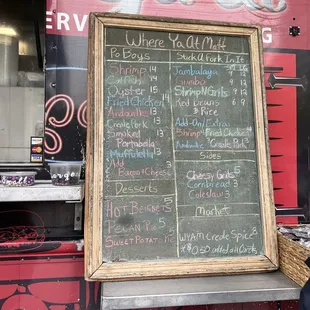 Where Ya At Matt
Po Boys
Shrimp 14
Catfish 14
Oyster 15
Fried Chicken 13
Andouille 13
Creole Pork 13
Smoked 13
Portabella
Muffuletta 13
Add 3
Bacon & Cheese
Desserts
Hot Beignets 5
Pecan Pie 5
Sweet Potato Pie 5
Stick A Fork In It
Jambalaya 9 12
Gumbo 9 12
Shrimp N Grits 9 12
Red Beans 6 9
& Rice
Add-On/Extra
Shrimp Fried Chicken
Andouille Creole Pork 5
Sides
Cheesy Grits 5
Cornbread 3
Coleslaw 3
Market
WYAM Creole Spice 8